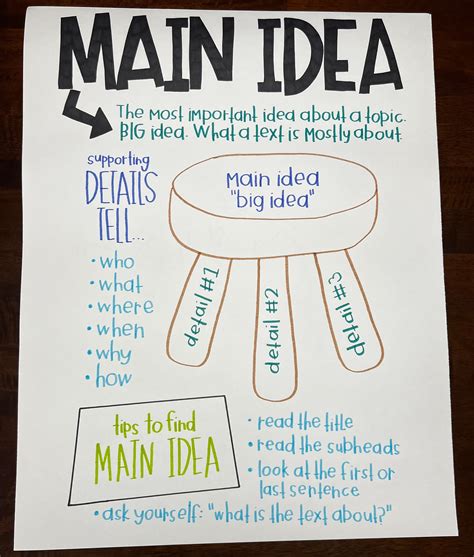 MAIN IDEA
The most important idea about a topic.
BIG idea. What a text is mostly about.
supporting
DETAILS
TELL...
Main idea
"big idea"
detail #1
detail #2
detail #3
• who
• what
• where
• when
• why
• how
tips to find
MAIN IDEA
• read the title
• read the subheads
• look at the first or
last sentence
• ask yourself: "what is the text about?"